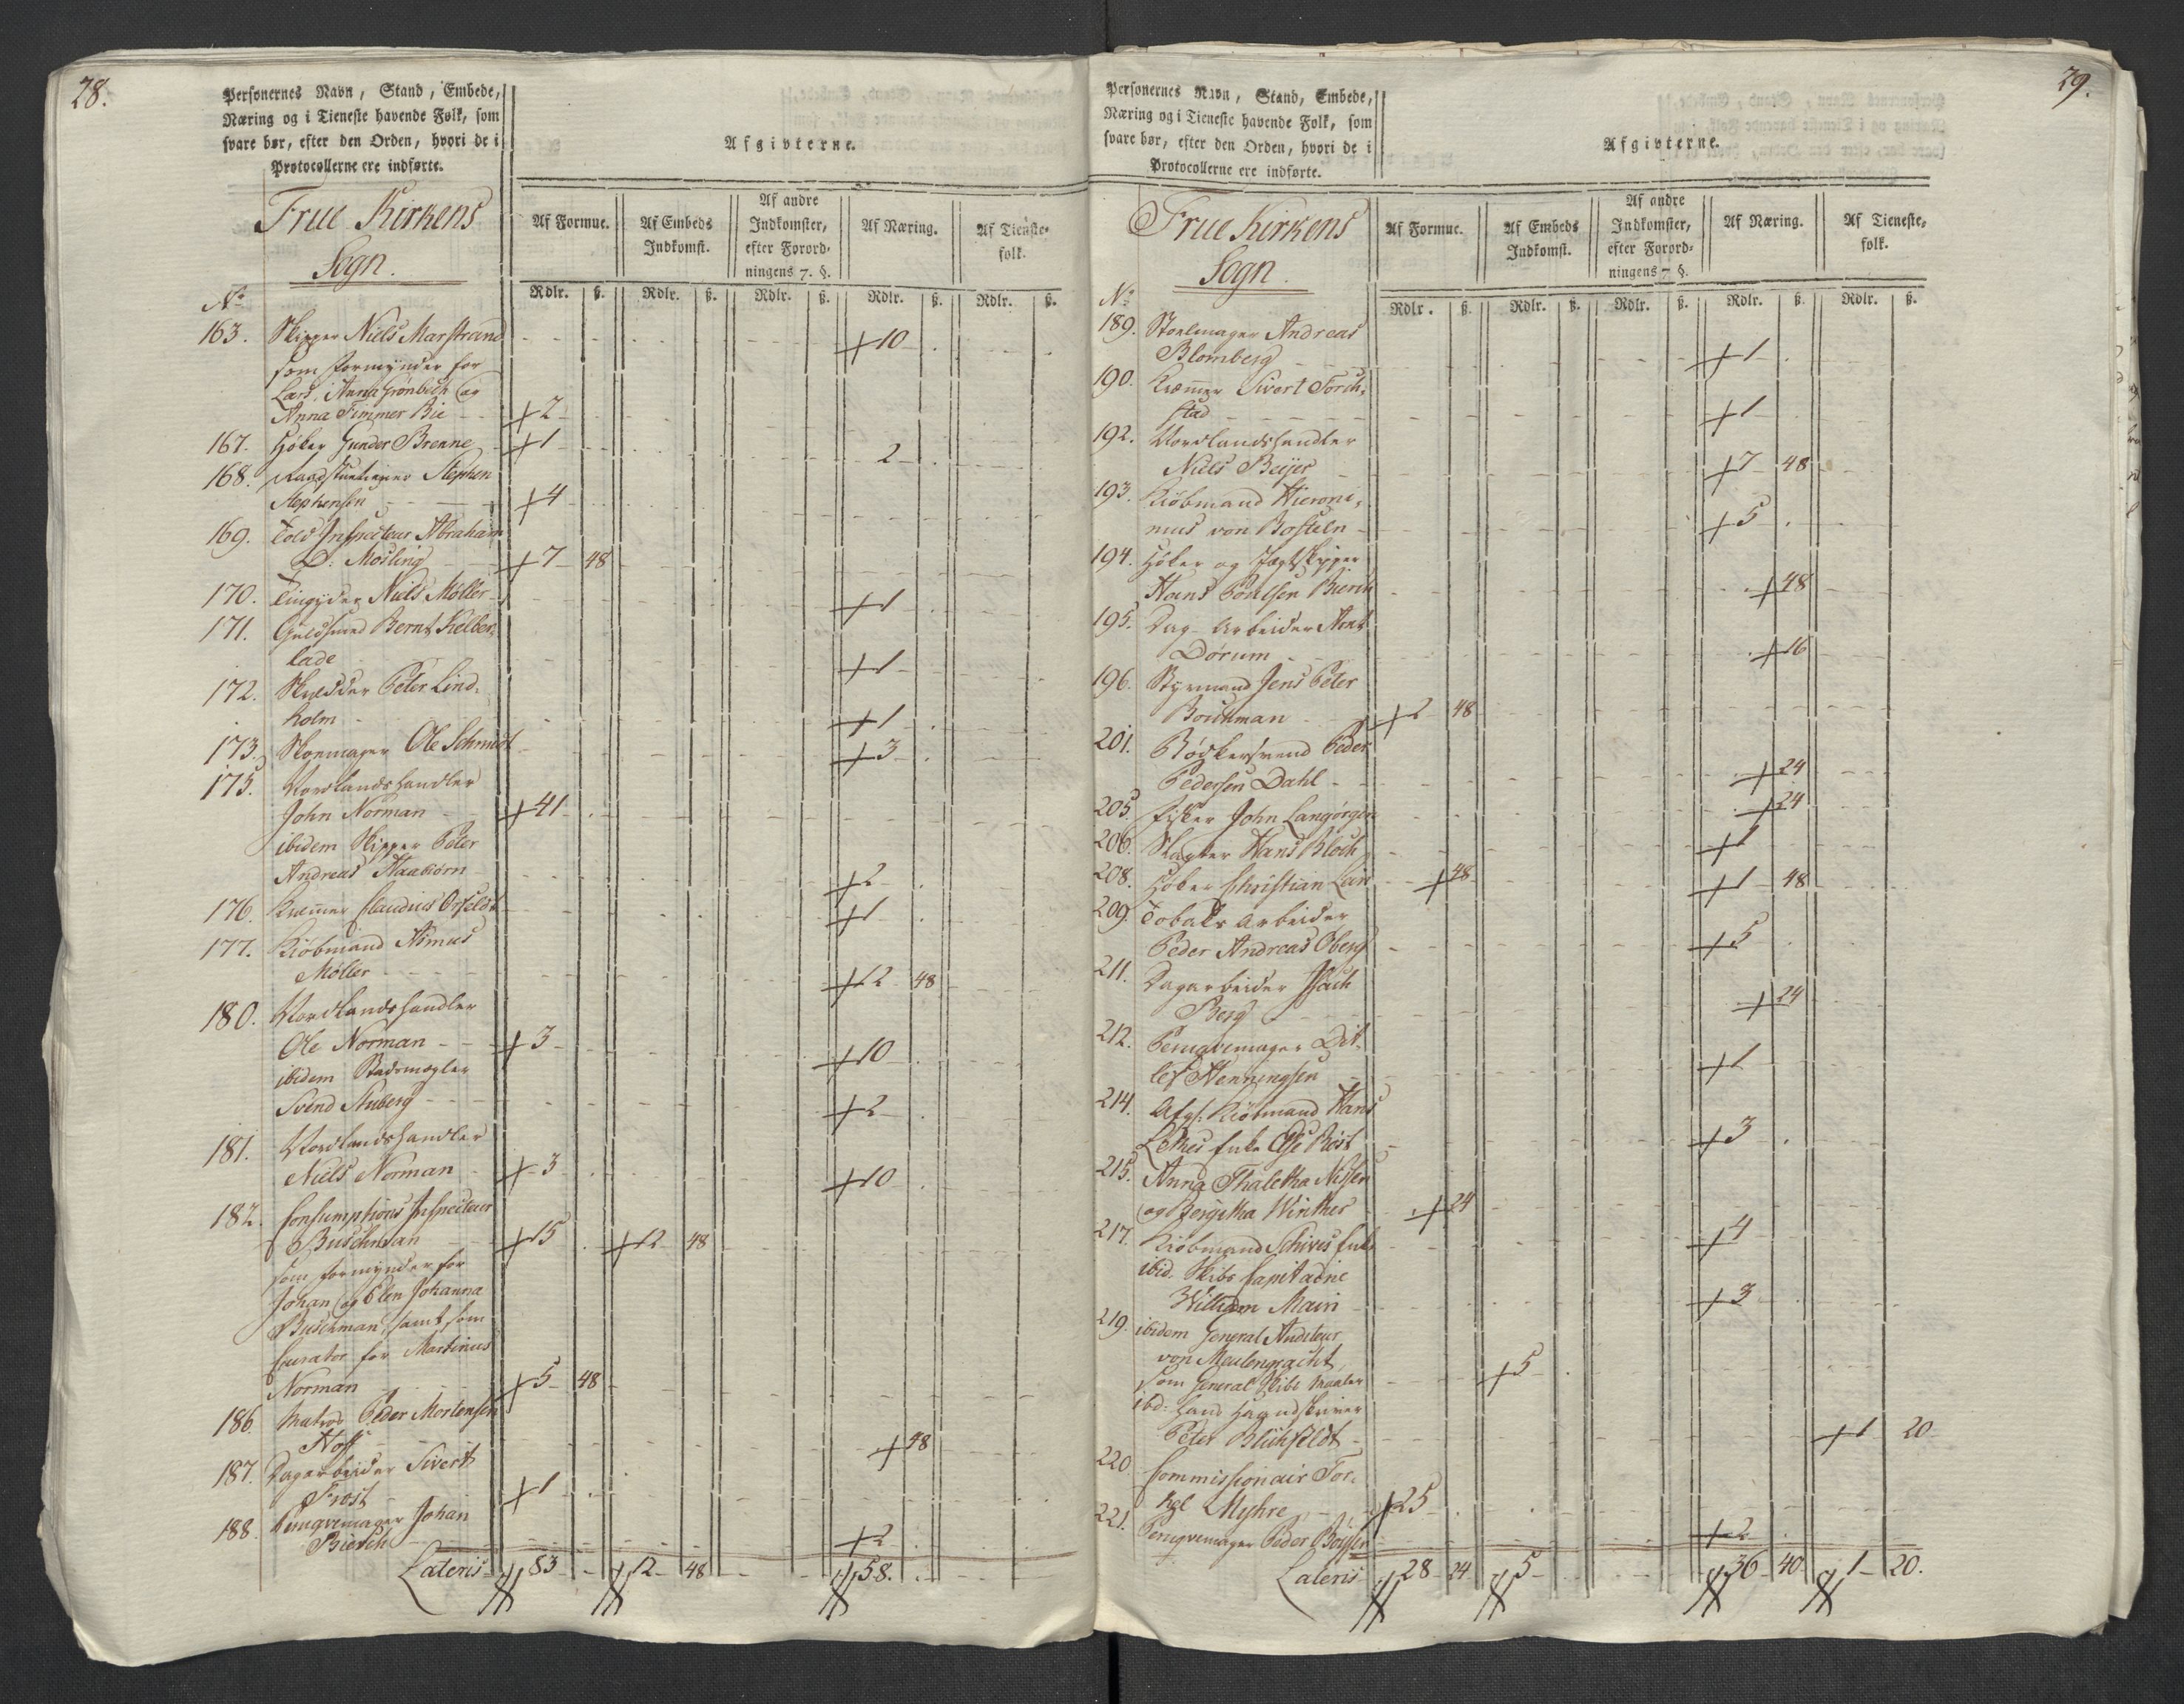 28.
Personernes Navn, Stand, Embede,
Næring og i Tieneste havende Folk, som
svare bør, efter den Orden, hvori de i
Protocollerne ere indførte.
Afgivterne.
Frue Kirkens
Sogn.
Af Formue.
Af Embeds
Indkomst.
Af andre
Indkomster,
efter Forord-
ningens 7. §.
Af Næring.
Af Tieneste-
folk.
No
Rdlr. ß. Rdlr. ß. Rdlr. ß. Rdlr. ß. Rdlr. ß.
163. Skipper Niels Marstrand 10
som Formynder for
Lars, Anna Grønbech og
Anna Timmer Bie 2
167. Høker Gunder Brenne 1 2
168. Stephen
Stephensen 4
169. Told Inspecteur Abraham
D: Mosling 7 48
170. Niels Møller 1
171. Guldsmed Bernt Kelber-
lade 1
172. Peter Lind-
holm 1
173. Skoemager Ole Schmidt 3
175. Nordlandshandler
John Norman 41
ibidem Skipper Peter
Andreas Haabiørn 2
176. Kræmer Claudius Orfeldt 1
177. Kiøbmand Asmus
Møller 12 48
180. Nordlandshandler
Ole Norman 3 10
ibidem Stadsmægler
Svend Auberg 2
181. Nordlandshandler
Niels Norman 3 10
182. Consumptions Inspecteur
Buschman 15 12 48
som Formynder for
Johan og Elen Johanna
Buschman, samt som
Curator for Martinus
Norman 5 48
186. Matros Peder Mortensen
Hoff 48
187. Dagarbeider Sivert
Frost 1
188. Perugvemager Johan
Biersch 2
Lateris 83 12 48 58.
29.
Personernes Navn, Stand, Embede,
Næring og i Tieneste havende Folk, som
svare bør, efter den Orden, hvori de i
Protocollerne ere indførte.
Afgivterne.
Frue Kirkens
Sogn.
Af Formue.
Af Embeds
Indkomst.
Af andre
Indkomster,
efter Forord-
ningens 7. §.
Af Næring.
Af Tieneste-
folk.
No
Rdlr. ß. Rdlr. ß. Rdlr. ß. Rdlr. ß. Rdlr. ß.
189. Stoelmager Andreas
Blomberg 1
190. Kræmer Sivert Torch-
stad 1
192. Nordlandshandler
Niels Beyer 7 48
193. Kiøbmand Hieroni-
mus von Bosteln 5
194. Høker og Jægtskipper
Hans Povelsen Bierch 48
195. Dag-Arbeider Arnt
Dørum 16
196. Styrmand Jens Peter
Bouchman 2 48
201. Bødkersvend Peder
Pedersen Dahl 24
205. Fisker John Langørgen 24
206. Slagter Hans Bloch 1
208. Høker Christian Lein 48 1 48
209. Tobaks Arbeider
Peder Andreas Oberg 5
211. Dagarbeider Isach
Berg 24
212. Perugvemager Dit-
lef Henningsen 1
214. Afg: Kiøbmand Hans
Lethes Enke Else Röst 3
215. Anna Thaletha Nissen
og Bergitha Winther 24
217. Kiøbmand Schives Enke 4
ibid. Skibs Capitaine
William Main 3
219. ibidem General Auditeur
von Meulengracht,
som General Skibs Maaler 5
ibd: hans
Peter Blichfeldt 1 20
220. Commissionair Tor-
kel Myhre 25
221. Perugvemager Peder Boysen 2
Lateris 28 24 5 36 40 1 20.